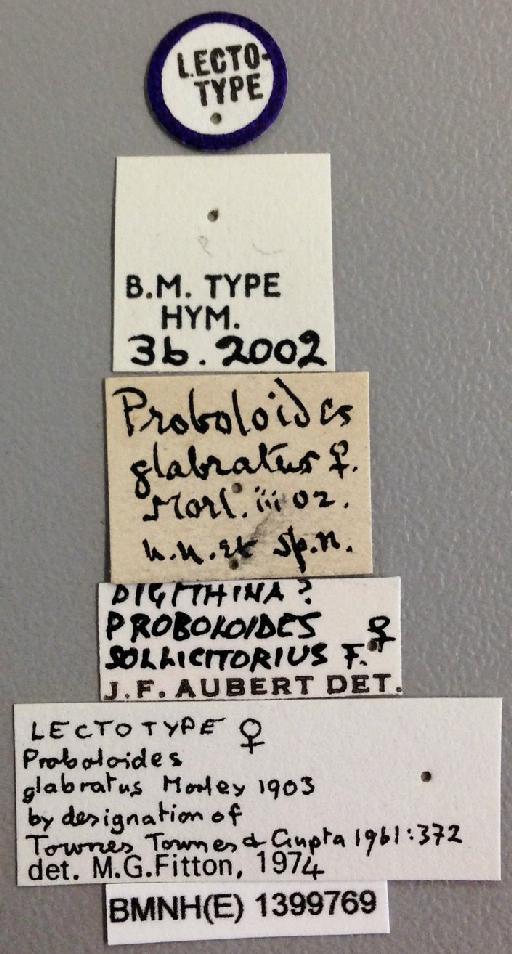 LECTO-
TYPE
B.M. TYPE
HYM.
3b.2002
Proboloides
glabratus ♀.
Morl. iii 02.
n.n. et sp.n.
DIGITHINA?
PROBOLOIDES ♀
SOLLICITORIUS F.
J.F. AUBERT DET.
LECTOTYPE ♀
Proboloides
glabratus Morley 1903
by designation of
Townes Townes & Gupta 1961:372
det. M.G.Fitton, 1974
BMNH(E) 1399769